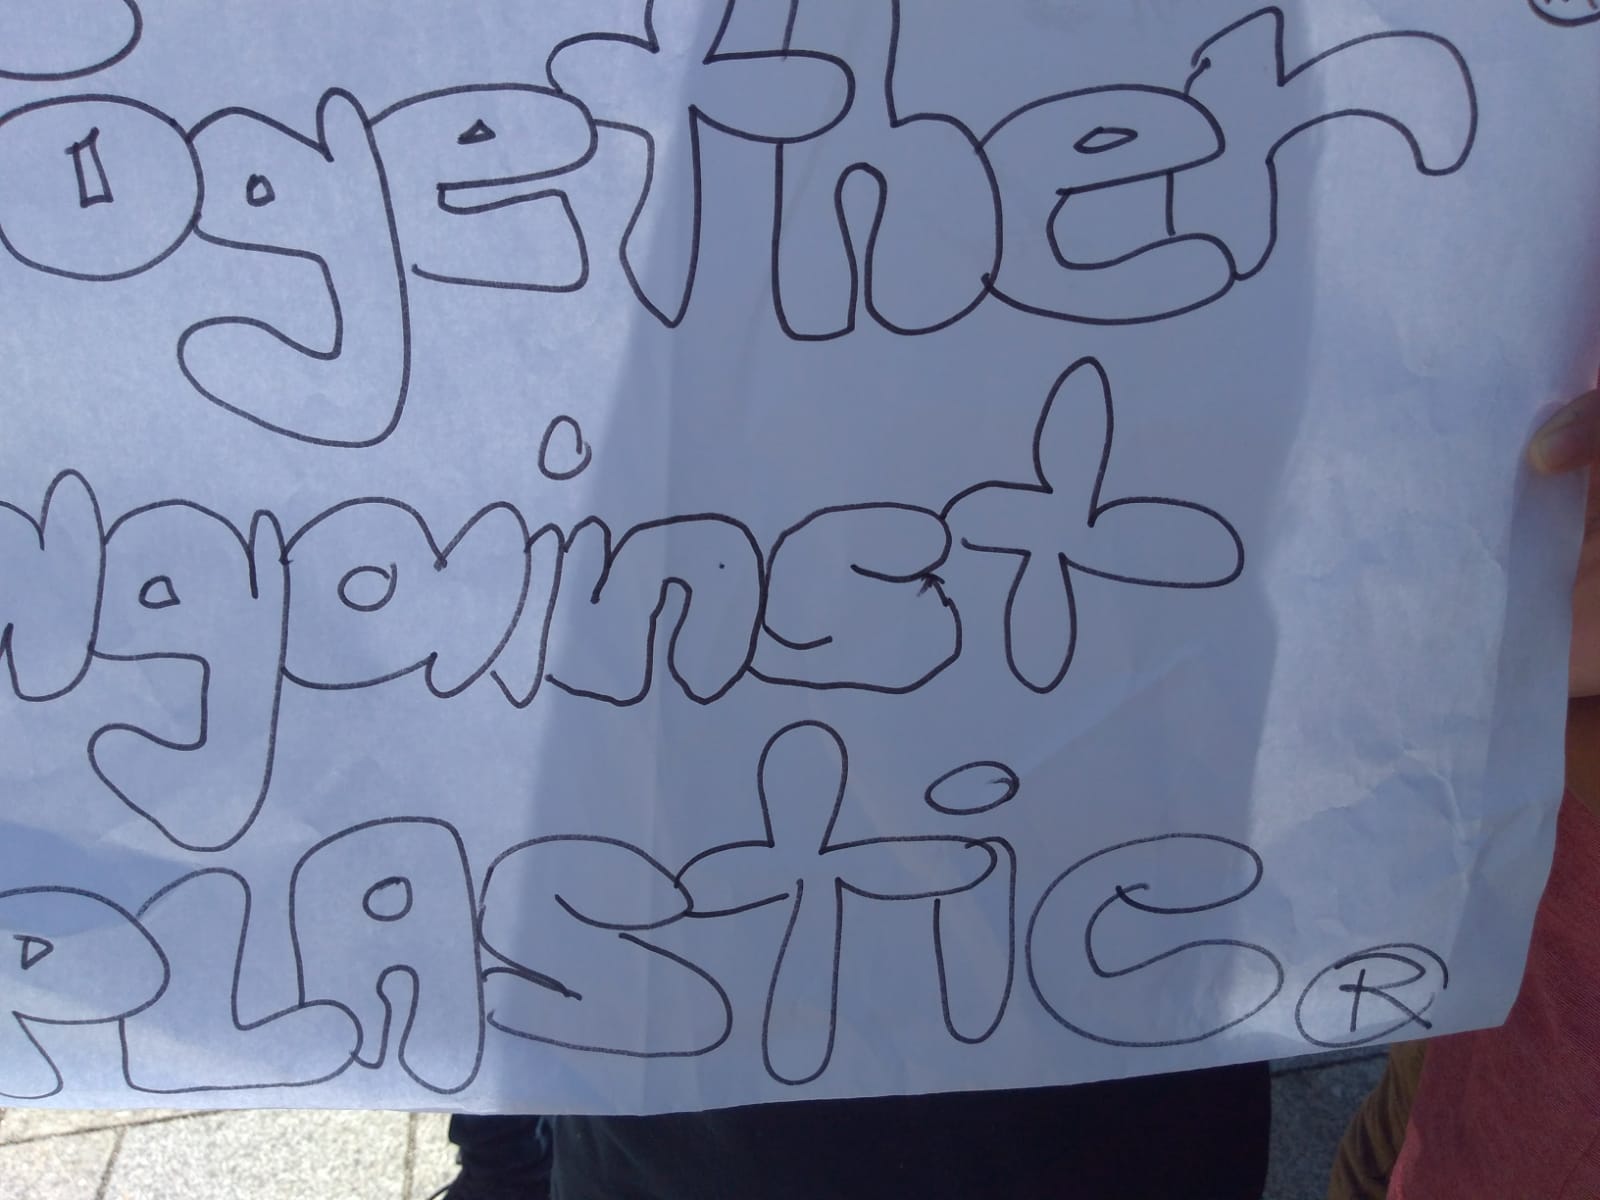 ogether
against
PLASTiC ®